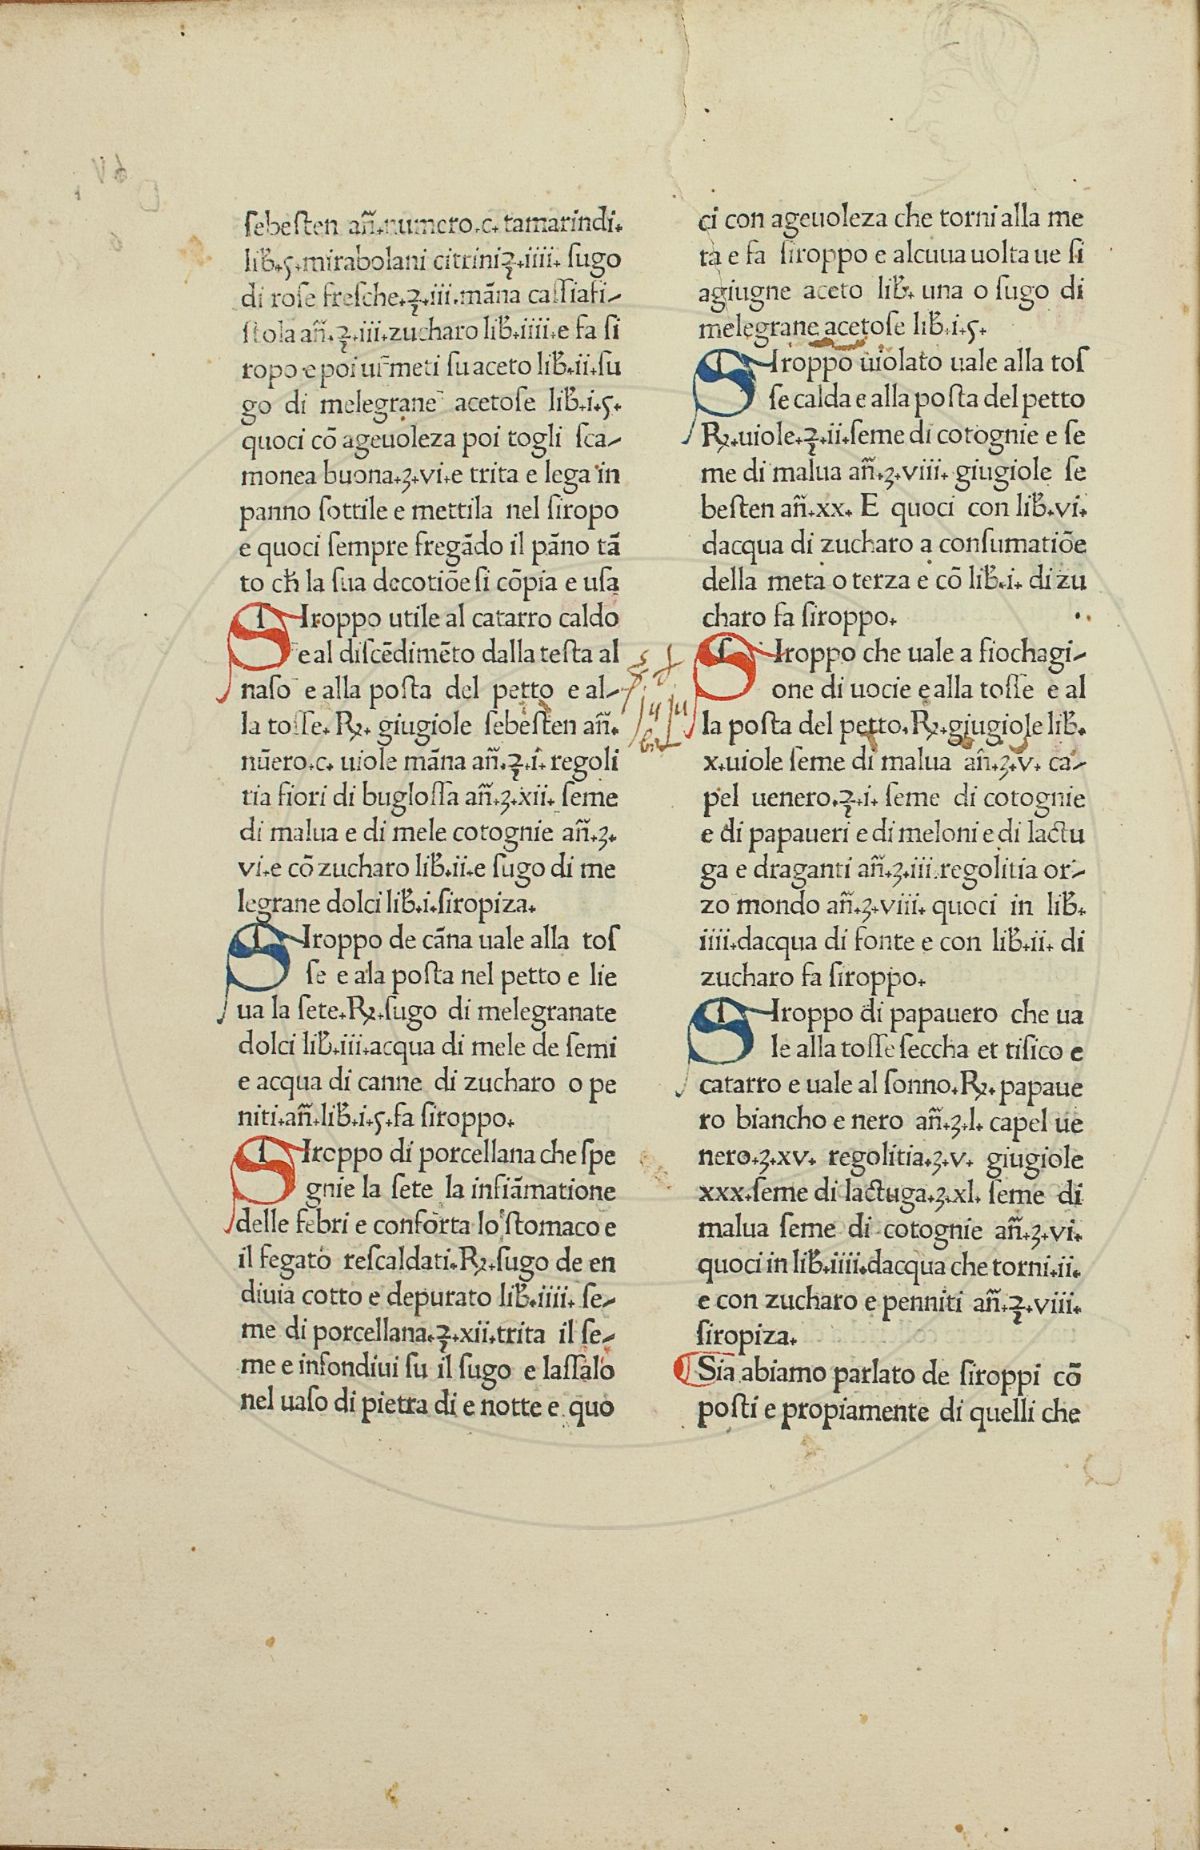 ſebeſten añ.numero.c. tamarindi.
lib̃.ς.mirabolani citrini℥.iiii. ſugo
di roſe freſche.℥.iii.māna caſſiafi-
ſtola añ.℥.iii.zucharo lib̃.iiii.e fa ſi
ropo e poi ui meti ſu aceto lib̃.ii.ſu
go di melegrane acetoſe lib̃.i.ς.
quoci cō ageuoleza poi togli ſca-
monea buona.ʒ.vi.e trita e lega in
panno ſottile e mettila nel ſiropo
e quoci ſempre fregādo il pāno tā
to cħ la ſua decotiōe ſi cōpia e uſa
SIroppo utile al catarro caldo
e al diſcēdimēto dalla teſta al
naſo e alla poſta del petto e al-
la toſſe. ℞. giugiole ſebeſten añ.
nūero.c. uiole māna añ.℥.i. regoli
tia fiori di bugloſſa añ.ʒ.xii. ſeme
di malua e di mele cotognie añ.ʒ.
vi.e cō zucharo lib̃.ii.e ſugo di me
legrane dolci lib̃.i.ſiropiza.
SIroppo de cāna uale alla toſ
ſe e ala poſta nel petto e lie
ua la ſete.℞.ſugo di melegranate
dolci lib̃.iii.acqua di mele de ſemi
e acqua di canne di zucharo o pe
niti.añ.lib̃.i.ς.fa ſiroppo.
SIroppo di porcellana che ſpe
gnie la ſete la infiāmatione
delle febri e conforta lo ſtomaco e
il fegato reſcaldati.℞.ſugo de en
diuia cotto e depurato lib̃.iiii. ſe-
me di porcellana.℥.xii.trita il ſe-
me e infondiui ſu il ſugo e laſſalo
nel uaſo di pietra di e notte e quo
ci con ageuoleza che torni alla me
ta e fa ſiroppo e alcuua uolta ue ſi
agiugne aceto lib̃. una o ſugo di
melegrane acetoſe lib̃.i.ς.
SIroppo uiolato uale alla toſ
ſe calda e alla poſta del petto
℞.uiole.℥.ii.ſeme di cotognie e ſe
me di malua añ.ʒ.viii. giugiole ſe
beſten añ.xx. E quoci con lib̃.vi.
dacqua di zucharo a conſumatiōe
della meta o terza e cō lib̃.i. di zu
charo fa ſiroppo.
SIroppo che uale a fiochagi-
one di uocie e alla toſſe e al
la poſta del petto.℞.giugiole lib̃.
x.uiole ſeme di malua añ.ʒ.v. ca-
pel uenero.℥.i. ſeme di cotognie
e di papaueri e di meloni e di lactu
ga e draganti añ.ʒ.iii.regolitia or-
zo mondo añ.ʒ.viii. quoci in lib̃.
iiii.dacqua di fonte e con lib̃.ii. di
zucharo fa ſiroppo.
SIroppo di papauero che ua
le alla toſſe ſeccha et tiſico e
catarro e uale al ſonno.℞.papaue
ro biancho e nero añ.ʒ.l. capel ue
nero.ʒ.xv. regolitia.ʒ.v. giugiole
xxx.ſeme di lactuga.ʒ.xl. ſeme di
malua ſeme di cotognie añ.ʒ.vi.
quoci in lib̃.iiii.dacqua che torni.ii.
e con zucharo e penniti añ.℥.viii.
ſiropiza.
Sia abiamo parlato de ſiroppi cō
poſti e propiamente di quelli che